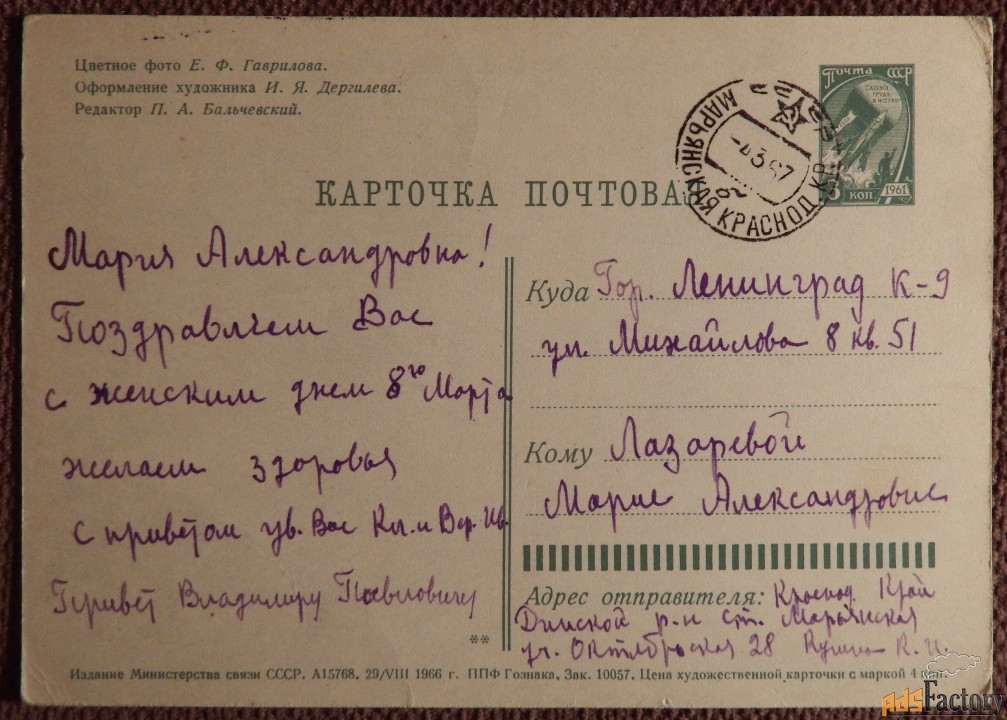 Цветное фото Е. Ф. Гаврилова.
Оформление художника И. Я. Дергилева.
Редактор П. А. Бальчевский.
Почта СССР
СЛАВА ТРУДУ И НАУКЕ!
3 КОП 1961
МАРЬЯНСКАЯ КРАСНОД. КР.
КАРТОЧКА ПОЧТОВАЯ
Мария Александровна!
Поздравляем Вас
с женским днем 8го Марта
желаем здоровья
с приветом ув. Вас Кл. и Вер. Ив.
Привет Владимиру Павловичу
Куда Гор. Ленинград К-9
ул. Михайлова 8 кв. 51
Кому Лазаревой
Марие Александровне
Адрес отправителя: Краснод. Край
Динской р-н ст. Марьянская
ул. Октябрьская 28 К. И.
**
Издание Министерства связи СССР. А15768. 29/VIII 1966 г. ППФ Гознака. Зак. 10057. Цена художественной карточки с маркой 4 коп.
adsFactory